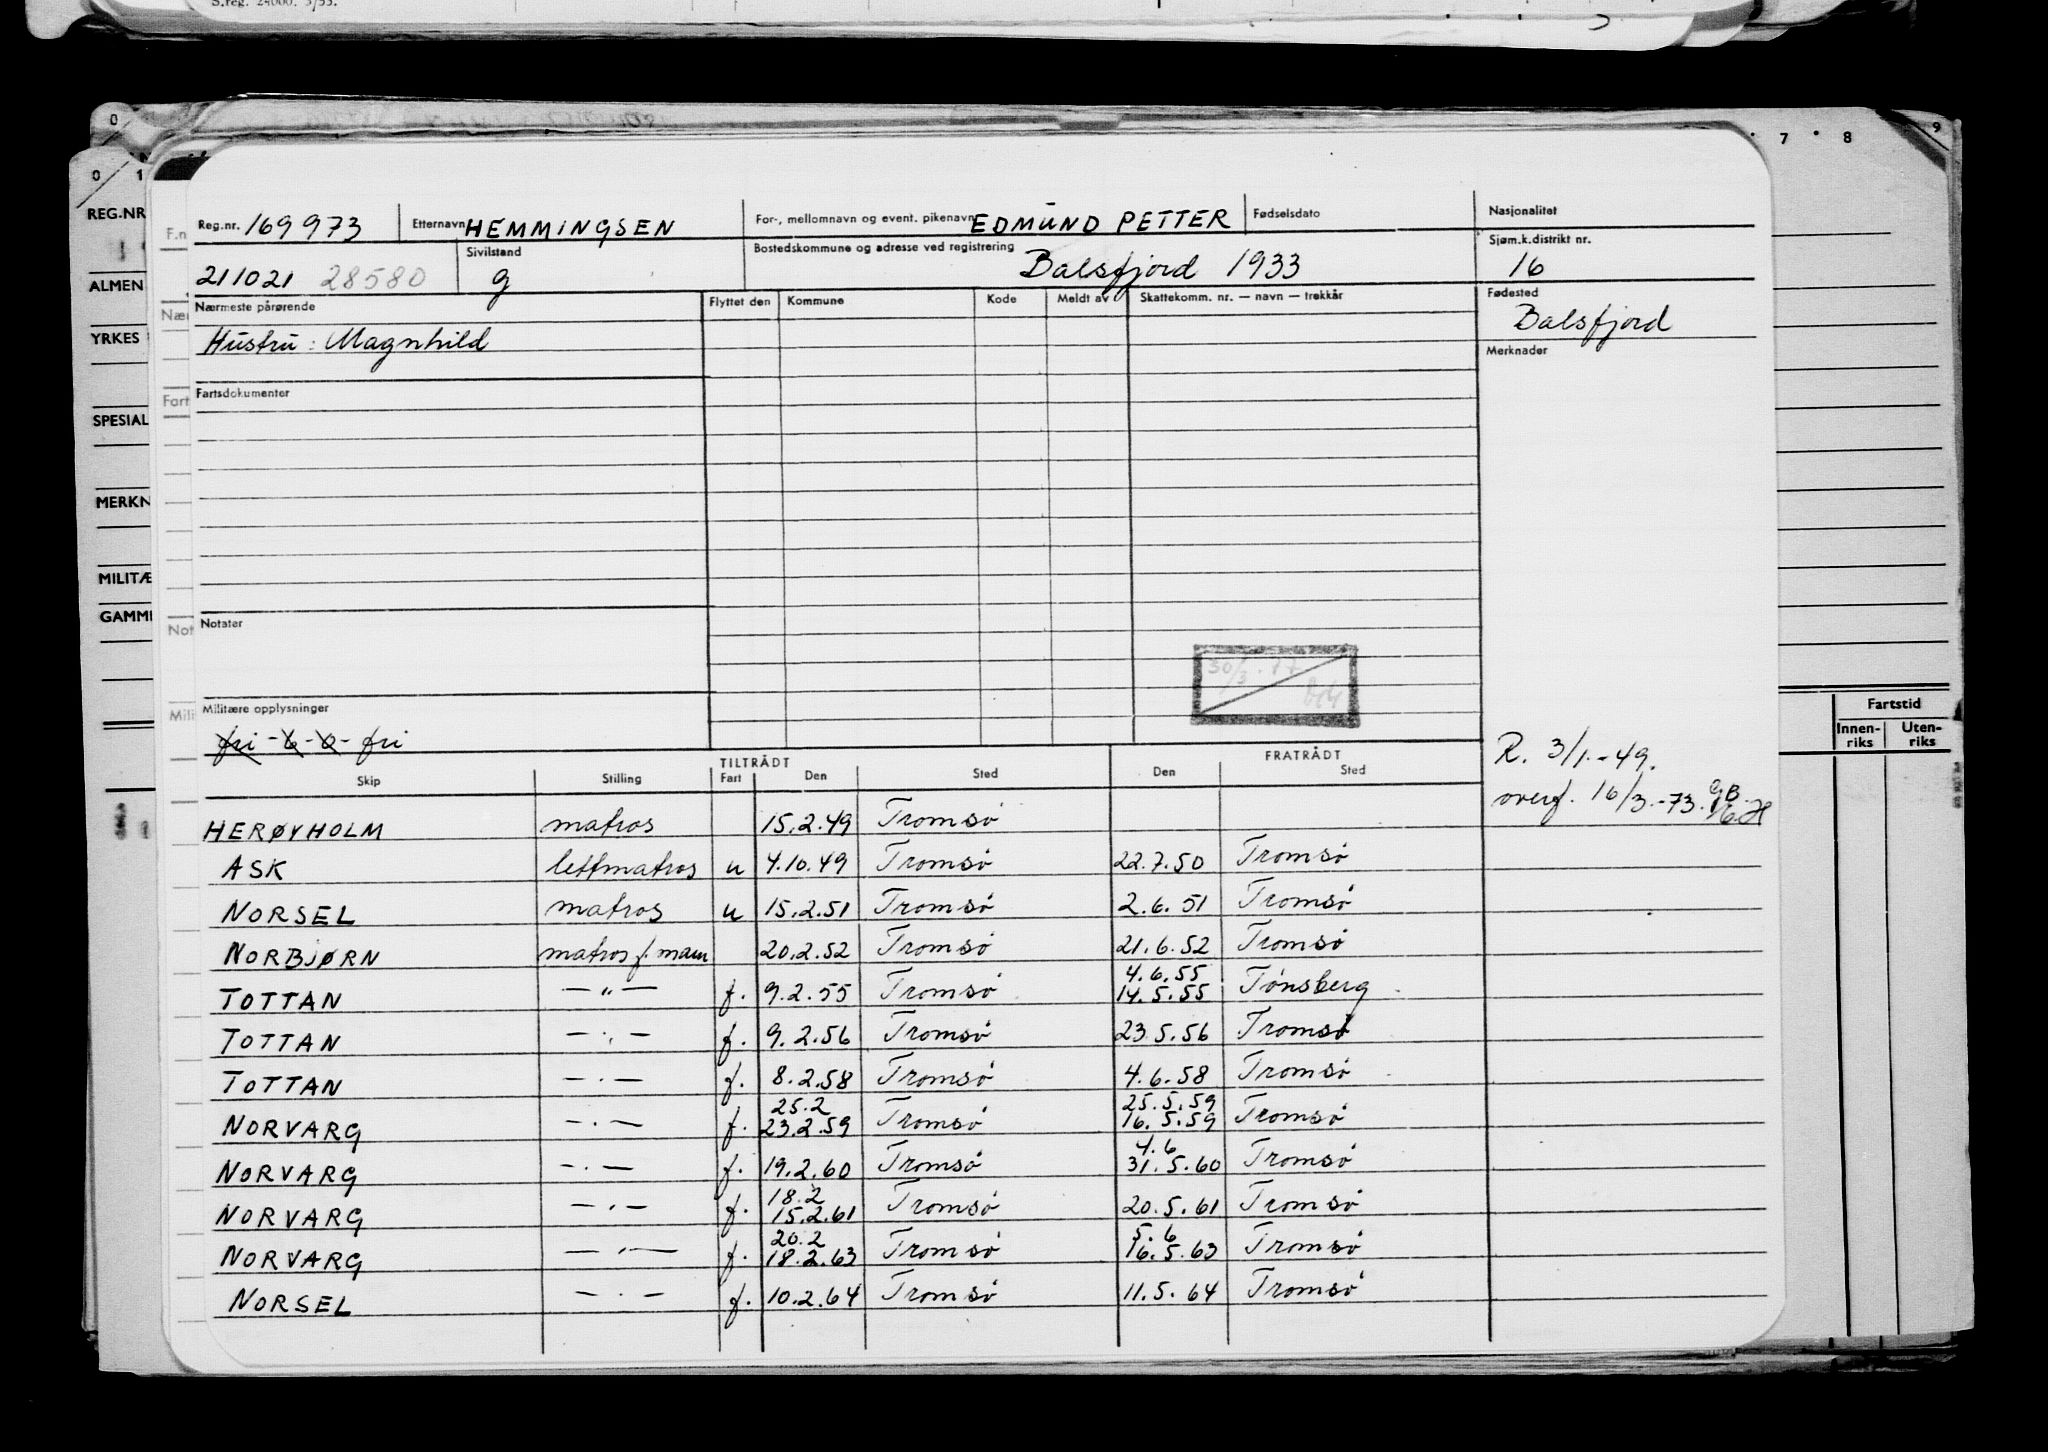 S.reg. 24000. 3/55.
0
0 1
7 8 9
REG.NR
ALMEN
YRKES
SPESIAL
MERKN
MILITÆ
GAMME
F.n
Nær
Fart
Not
Mili
Fartstid
Innen-riks Uten-riks
Reg.nr. 169973 Etternavn HEMMINGSEN For-, mellomnavn og event. pikenavn EDMUND PETTER Fødselsdato Nasjonalitet
211021 28580 Sivilstand g Bostedskommune og adresse ved registrering Balsfjord 1933 Sjøm.k.distrikt nr. 16
Nærmeste pårørende Flyttet den Kommune Kode Meldt av Skattekomm. nr. — navn — trekkår Fødested
Hustru: Magnhild Balsfjord
Merknader
Fartsdokumenter
Notater
30/3-77
Militære opplysninger
fri - b - 0 - fri
R. 3/1.-49.
overf. 16/3.-73.
TILTRÅDT FRATRÅDT
Skip Stilling Fart Den Sted Den Sted
HERØYHOLM matros 15.2.49 Tromsø
ASK lettmatros u 4.10.49 Tromsø 22.7.50 Tromsø
NORSEL matros u 15.2.51 Tromsø 2.6.51 Tromsø
NORBJØRN matros f.mann 20.2.52 Tromsø 21.6.52 Tromsø
4.6.55
TOTTAN — " — f. 9.2.55 Tromsø 14.5.55 Tønsberg
TOTTAN — " — f. 9.2.56 Tromsø 23.5.56 Tromsø
TOTTAN — " — f. 8.2.58 Tromsø 4.6.58 Tromsø
25.2 25.5.59
NORVARG — " — f. 23.2.59 Tromsø 16.5.59 Tromsø
4.6
NORVARG — " — f. 19.2.60 Tromsø 31.5.60 Tromsø
18.2
NORVARG — " — f. 15.2.61 Tromsø 20.5.61 Tromsø
20.2 5.6
NORVARG — " — f. 18.2.63 Tromsø 16.5.63 Tromsø
NORSEL — " — f. 10.2.64 Tromsø 11.5.64 Tromsø